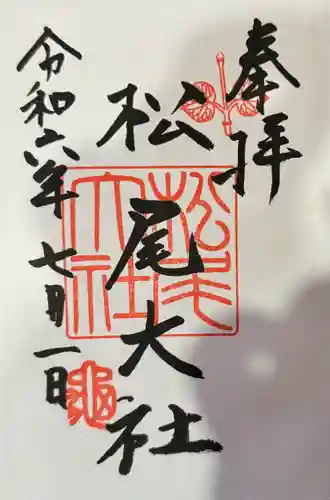 奉拝
松尾大社
令和六年七月一日
松尾大社